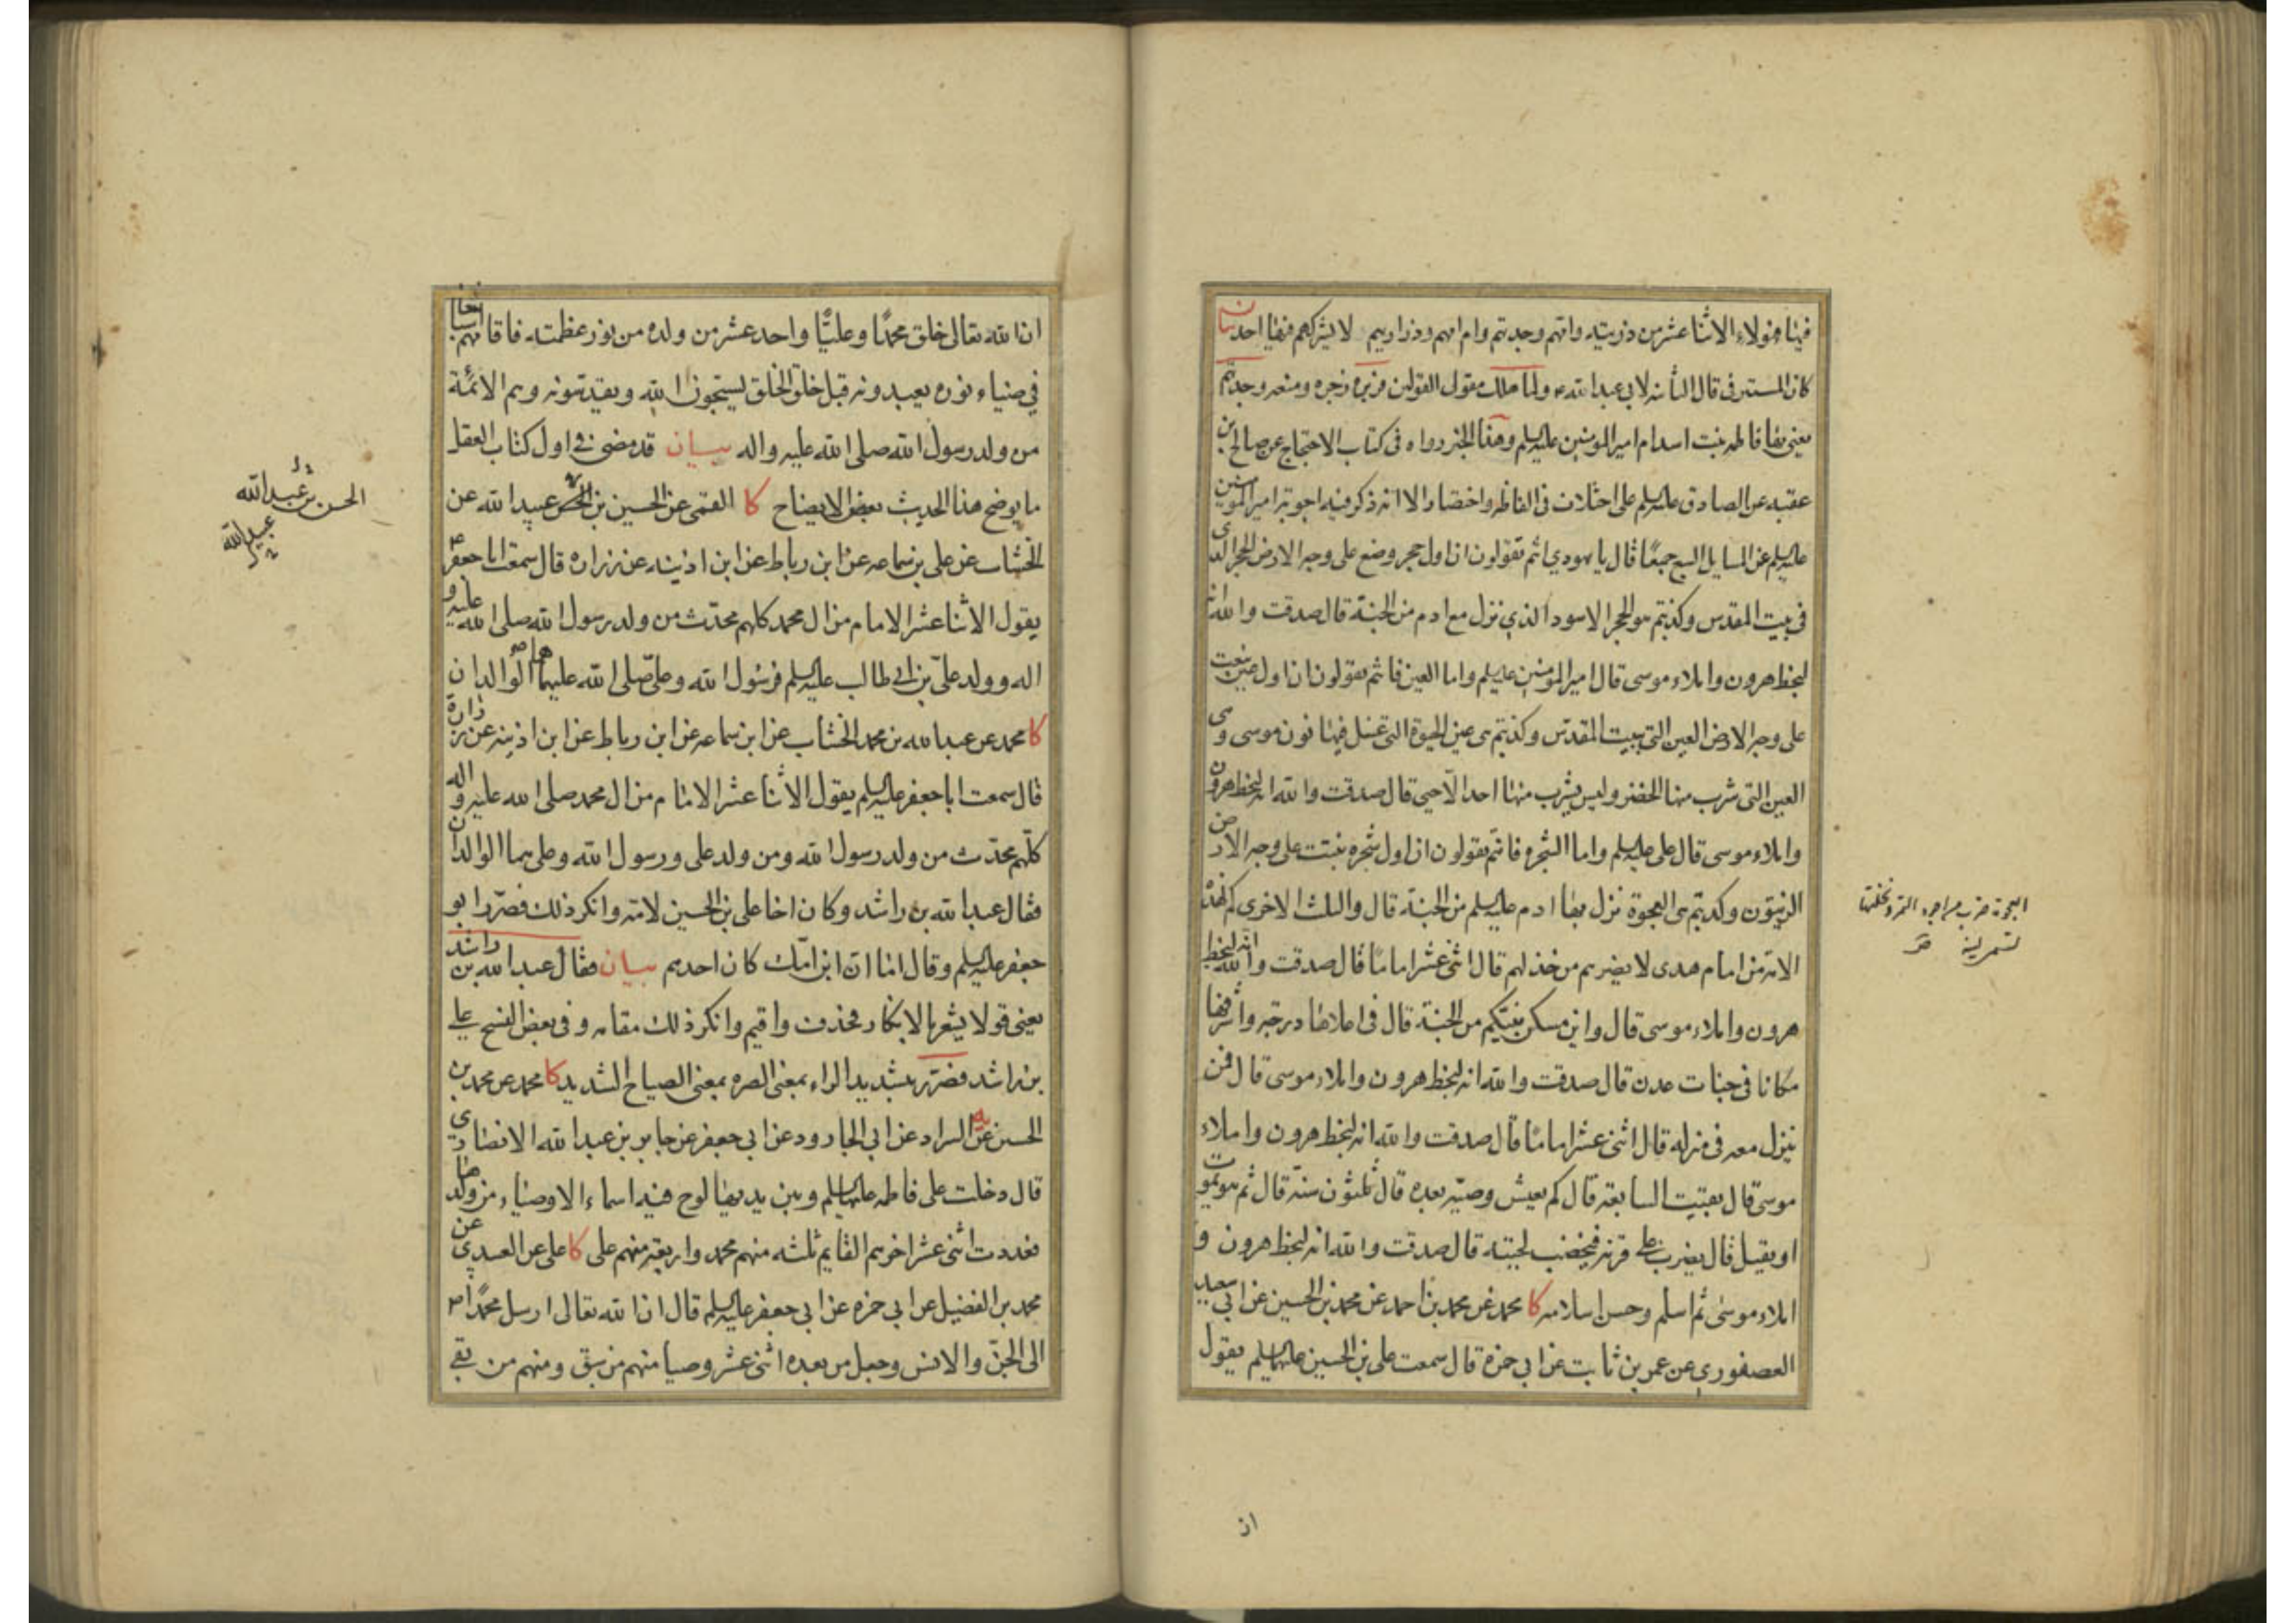 فيها فهولاء الاثنا عشر من ذريته وامهم وجدتهم وام امهم وذراريهم لا يشركهم فيها احد بيان
كان المستتر في قال الثانية لابي عبد الله ع ولما هلك مقول القولين فزبره زجره ومنعه وجدتهم
يعني بها فاطمة بنت اسد ام امير المومنين عليه السلم وهذا الخبر رواه في كتاب الاحتجاج عن صالح بن
عقبه عن الصادق عليه السلم على اختلاف في الفاظه واختصار الا انه ذكر فيه اجوبة امير المومنين
عليه السلم عن المسايل السبع جميعًا قال يا يهودي انتم تقولون ان اول حجر وضع على وجه الارض الحجر الذي
في بيت المقدس وكذبتم هو الحجر الاسود الذي نزل مع ادم من الجنة قال صدقت والله انه
لبخط هرون واملاء موسى قال امير المومنين عليه السلم واما العين فانتم تقولون ان اول عين نبعت
على وجه الارض العين التي ببيت المقدس وكذبتم هى عين الحيوة التي غسل فيها نون موسى وهى
العين التي شرب منها الخضر وليس يشرب منها احد الا حيي قال صدقت والله انه لبخط هرون
واملاء موسى قال على عليه السلم واما الشجرة فانتم تقولون ان اول شجرة نبتت على وجه الارض
الزيتون وكذبتم هى العجوة نزل بها ادم عليه السلم من الجنة قال والثلث الاخرى كم لهذه
الامة من امام هدى لا يضرهم من خذلهم قال اثنى عشر امامًا قال صدقت والله انه لبخط
هرون واملاء موسى قال واين مسكن نبيكم من الجنة قال في اعلاها درجة واشرفها
مكانا في جنات عدن قال صدقت والله انه لبخط هرون واملاء موسى قال فمن
ينزل معه في منزله قال اثنى عشر امامًا قال صدقت والله انه لبخط هرون واملاء
موسى قال بقيت السابعة قال كم يعيش وصيه بعده قال ثلثون سنة قال ثم هو يموت
او يقتل قال يضرب على قرنه فيخضب لحيته قال صدقت والله انه لبخط هرون و
املاء موسى ثم اسلم وحسن اسلامه كا محمد عن محمد بن احمد عن محمد بن الحسين عن ابي سعيد
العصفوري عن عمر بن ثابت عن ابي حمزة قال سمعت على بن الحسين عليهما السلم يقول
العجوة ضرب من اجود التمر ونخلتها
تسمى لينة
ان
ان الله تعالى خلق محمدًا وعليًّا واحد عشر من ولده من نور عظمته فاقامهم اشباحًا
في ضياء نوره يعبدونه قبل خلق الخلق يسبحون الله ويقدسونه وهم الائمة
من ولد رسول الله صلى الله عليه واله بيان قد مضى في اول كتاب العقل
ما يوضح هذا الحديث بعض الايضاح كا القمى عن الحسين بن عبيد الله عن
الخشاب عن على بن سماعه عن ابن رباط عن ابن اذينه عن زرارة قال سمعت ابا جعفر ع
يقول الاثنا عشر الامام من ال محمد كلهم محدّث من ولد رسول الله صلى الله عليه و
اله وولد على بن ابي طالب عليه السلم فرسول الله وعلى صلى الله عليهما هما الوالدان
كا محمد عن عبد الله بن محمد الخشاب عن ابن سماعه عن ابن رباط عن ابن اذينه عن زرارة
قال سمعت ابا جعفر عليه السلم يقول الاثنا عشر الامام من ال محمد صلى الله عليه واله
كلّهم محدّث من ولد رسول الله ومن ولد على ورسول الله وعلى هما الوالدان
فقال عبد الله بن راشد وكان اخا على بن الحسين لامه وانكر ذلك فصرّر ابو
جعفر عليه السلم وقال اما ان ابن امّك كان احدهم بيان فقال عبد الله بن راشد
يعنى قولا يشعر بالانكار فحذف واقيم وانكر ذلك مقامه وفي بعض النسخ على
بن راشد فصرّر بتشديد الراء بمعنى الصره بمعنى الصياح الشديد كا محمد عن محمد بن
الحسين عن السراد عن ابي الجارود عن ابي جعفر عن جابر بن عبد الله الانصاري
قال دخلت على فاطمه عليها السلم وبين يديها لوح فيه اسماء الاوصياء من ولدها
فعددت اثنى عشر اخرهم القايم ثلثه منهم محمد واربعة منهم على كا على عن العبيدي عن
محمد بن الفضيل عن ابي حمزه عن ابي جعفر عليه السلم قال ان الله تعالى ارسل محمدًا ص
الى الجنّ والانس وجعل من بعده اثنى عشر وصيا منهم من سبق ومنهم من بقي
الحسن بن عبد الله
عبيد الله